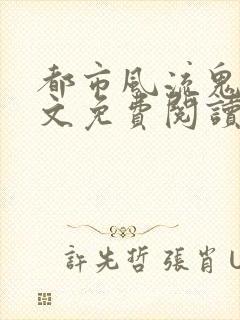 都市風流鬼
文免費閱讀
許先哲 張肖 U